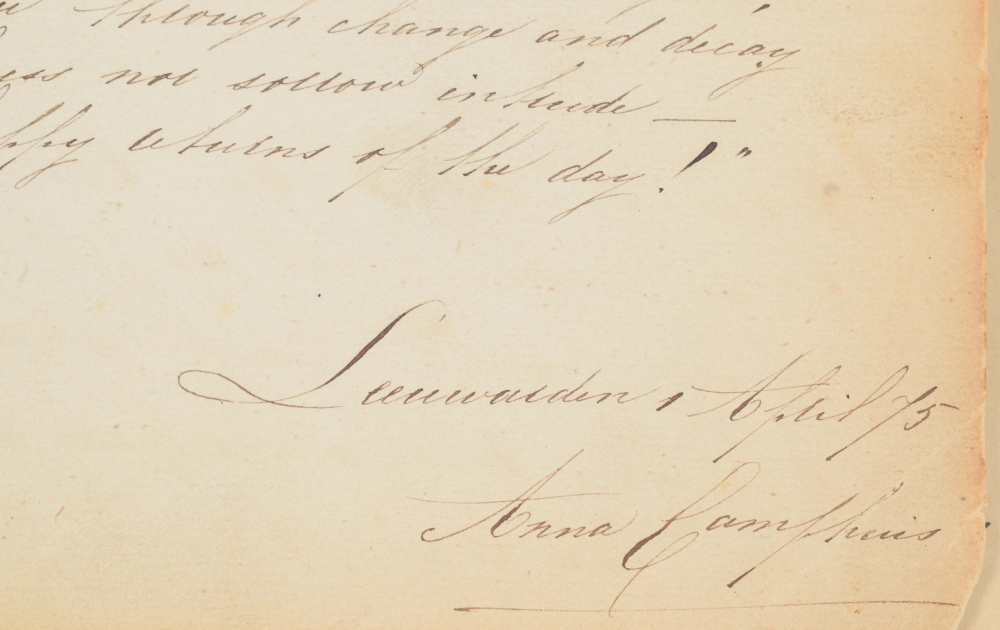 through change and decay
not sorrow intrude —
returns of the day!"
Leeuwarden, April 75
Anna Camphuis